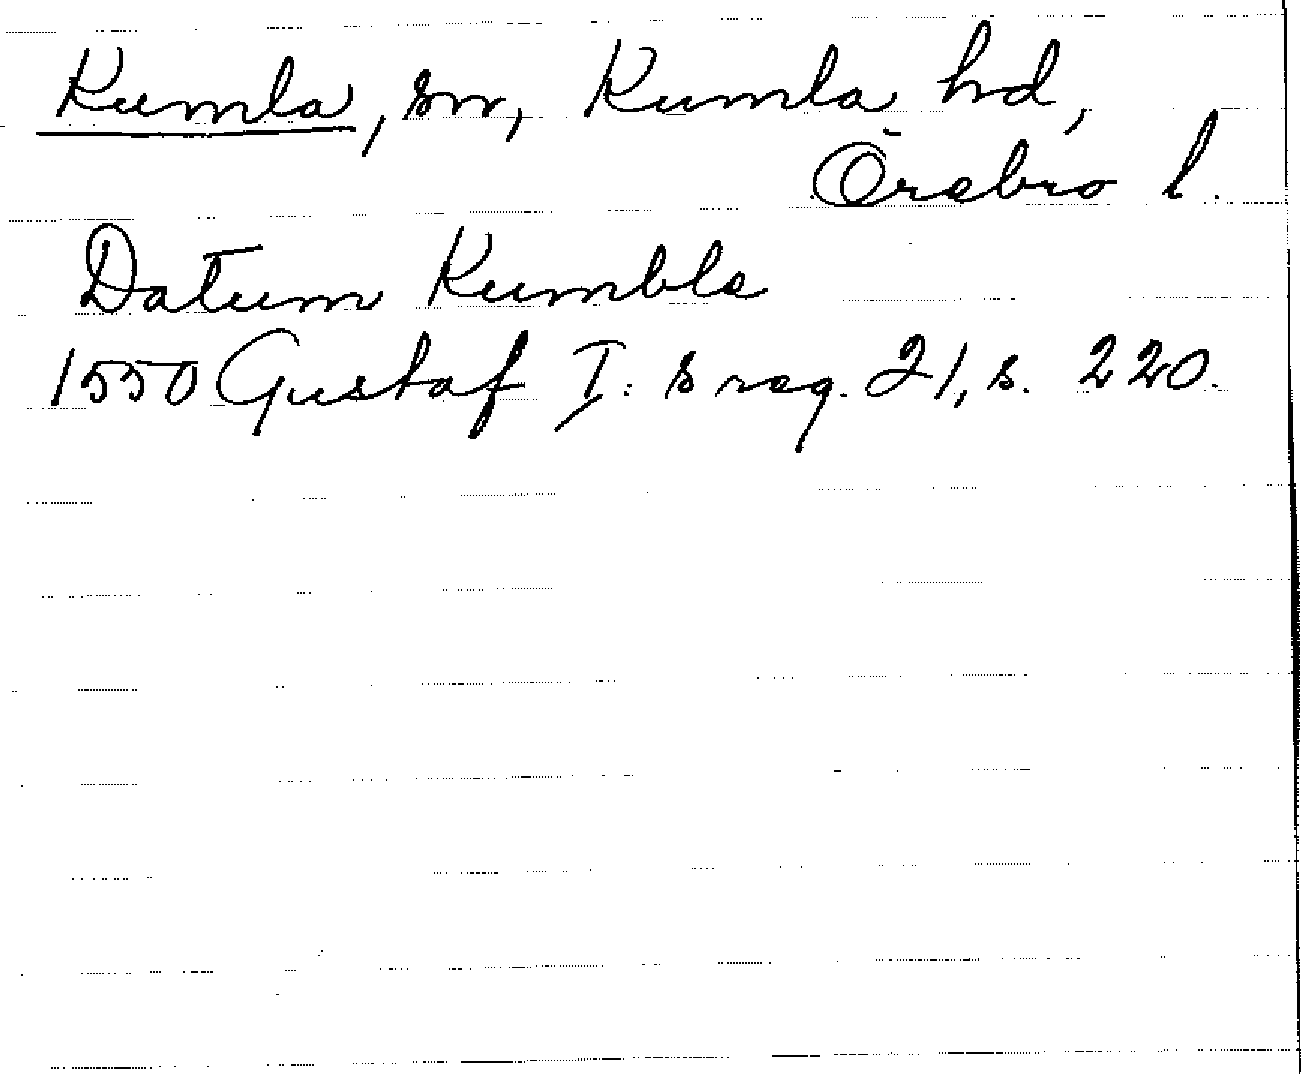 Kumla, sn, Kumla hd,
Örebro l.
Datum Kumbla
1550 Gustaf I:s reg. 21, s. 220.